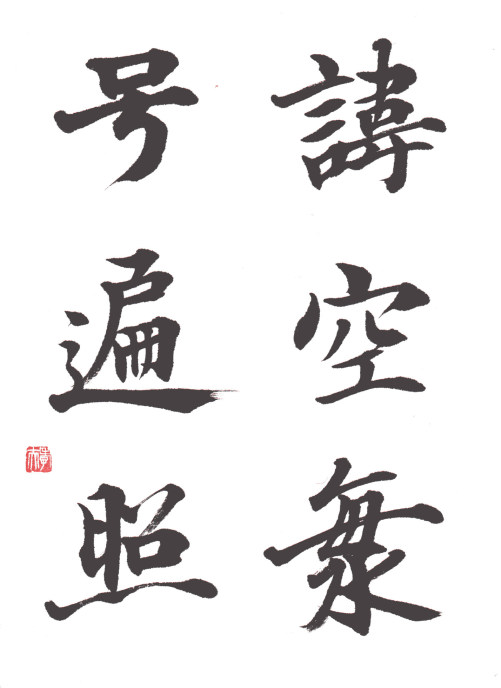 諱空海
号遍照